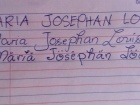 ARIA JOSEPHAN LO
aria Josephan Louis
Maria Josephan Lou